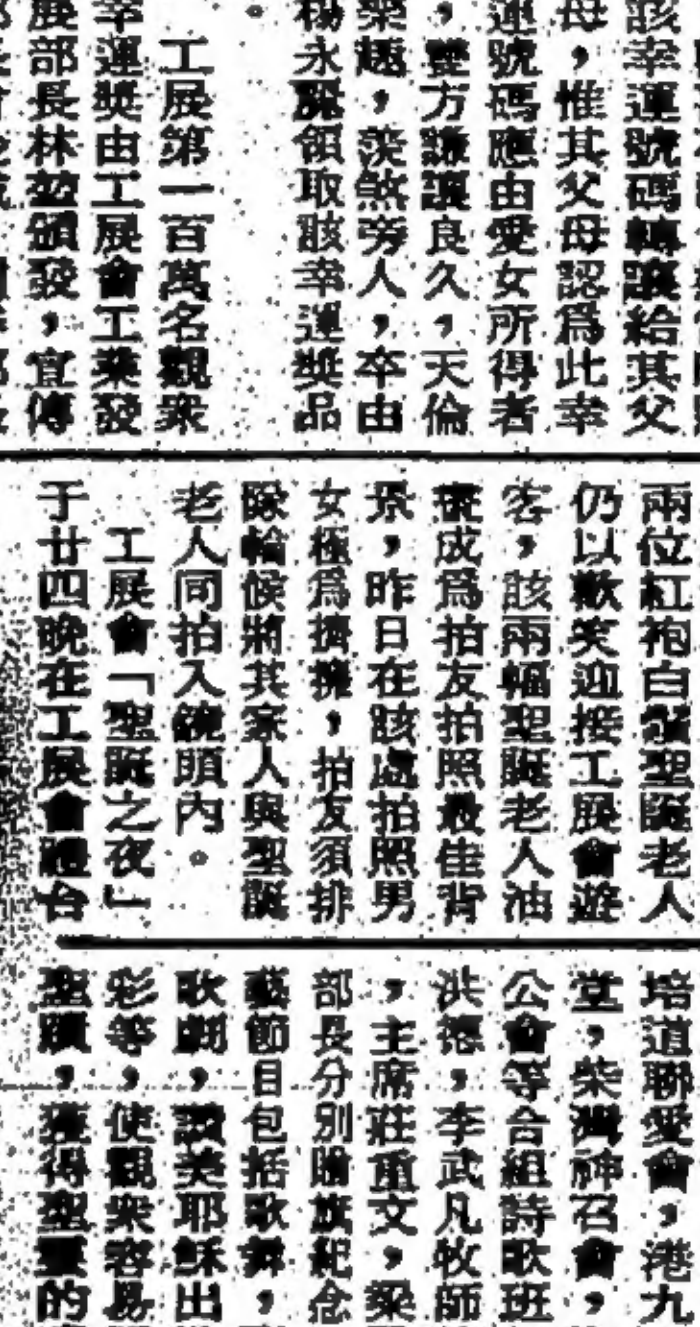 該幸運號碼轉讓給其父
母，惟其父母認為此幸
運號碼應由愛女所得者
，雙方謙讓良久，天倫
樂趣，羨煞旁人，卒由
楊永領取該幸運獎品
。
工展第一百萬名觀眾
幸運獎由工展會工業發
展部長林頒發，宣傳
兩位紅袍白鬚聖誕老人
仍以歡笑迎接工展會遊
客，該兩幅聖誕老人油
畫成為拍友拍照最佳背
景，昨日在該處拍照男
女極為擠擁，拍友須排
隊輪候將其家人與聖誕
老人同拍入鏡頭內。
工展會「聖誕之夜」
于廿四晚在工展會禮台
培道聯愛會，港九
堂，柴灣神召會，
公會等合組詩歌班
洪德，李武凡牧師
，主席莊重文，梁
部長分別贈旗紀念
藝節目包括歌舞，
歌劇，讚美耶穌出
彩等，使觀眾容易
聖蹟，獲得聖靈的